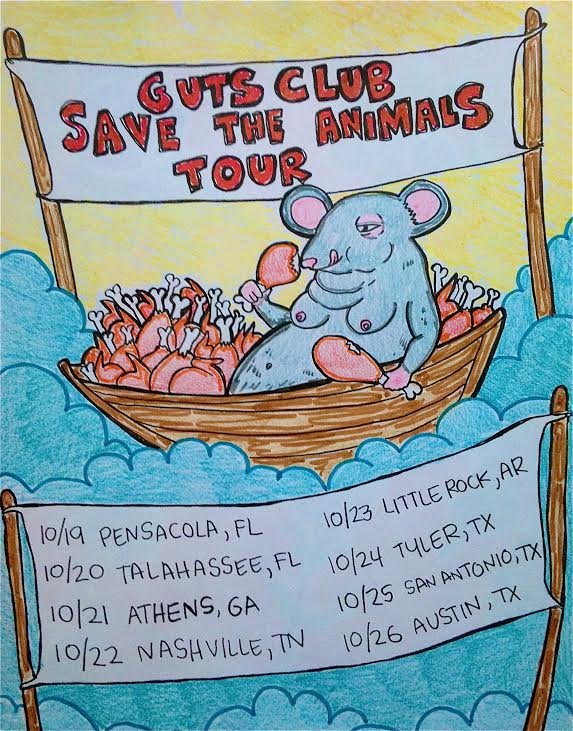 GUTS CLUB
SAVE THE ANIMALS
TOUR
10/19 PENSACOLA, FL
10/20 TALAHASSEE, FL
10/21 ATHENS, GA
10/22 NASHVILLE, TN
10/23 LITTLE ROCK, AR
10/24 TYLER, TX
10/25 SAN ANTONIO, TX
10/26 AUSTIN, TX